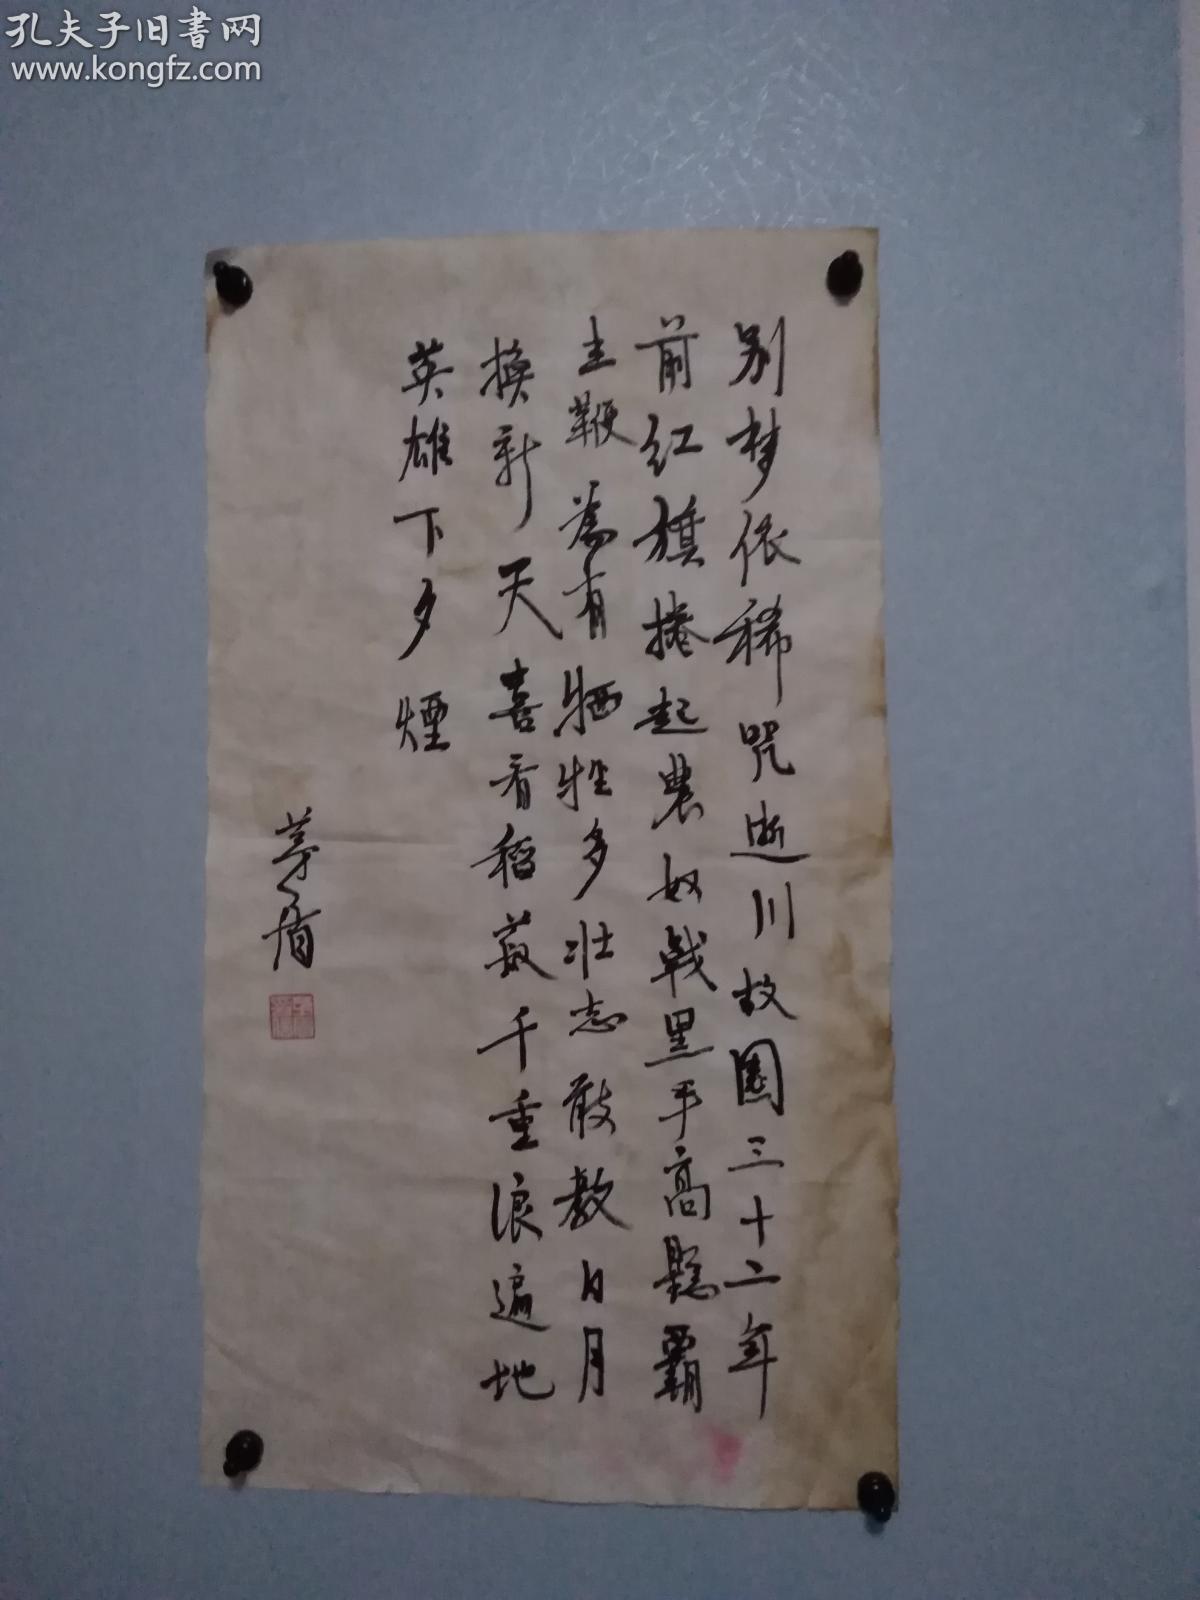 孔夫子旧書网
www.kongfz.com
别梦依稀咒逝川故園三十二年
前红旗捲起農奴戟黑手高懸霸
主鞭為有牺牲多壮志敢教日月
換新天喜看稻菽千重浪遍地
英雄下夕煙
茅盾